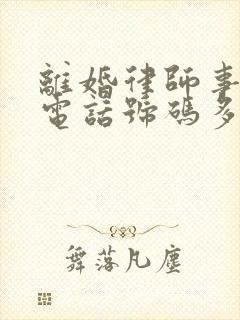 離婚律師事
電話號碼多
舞落凡塵